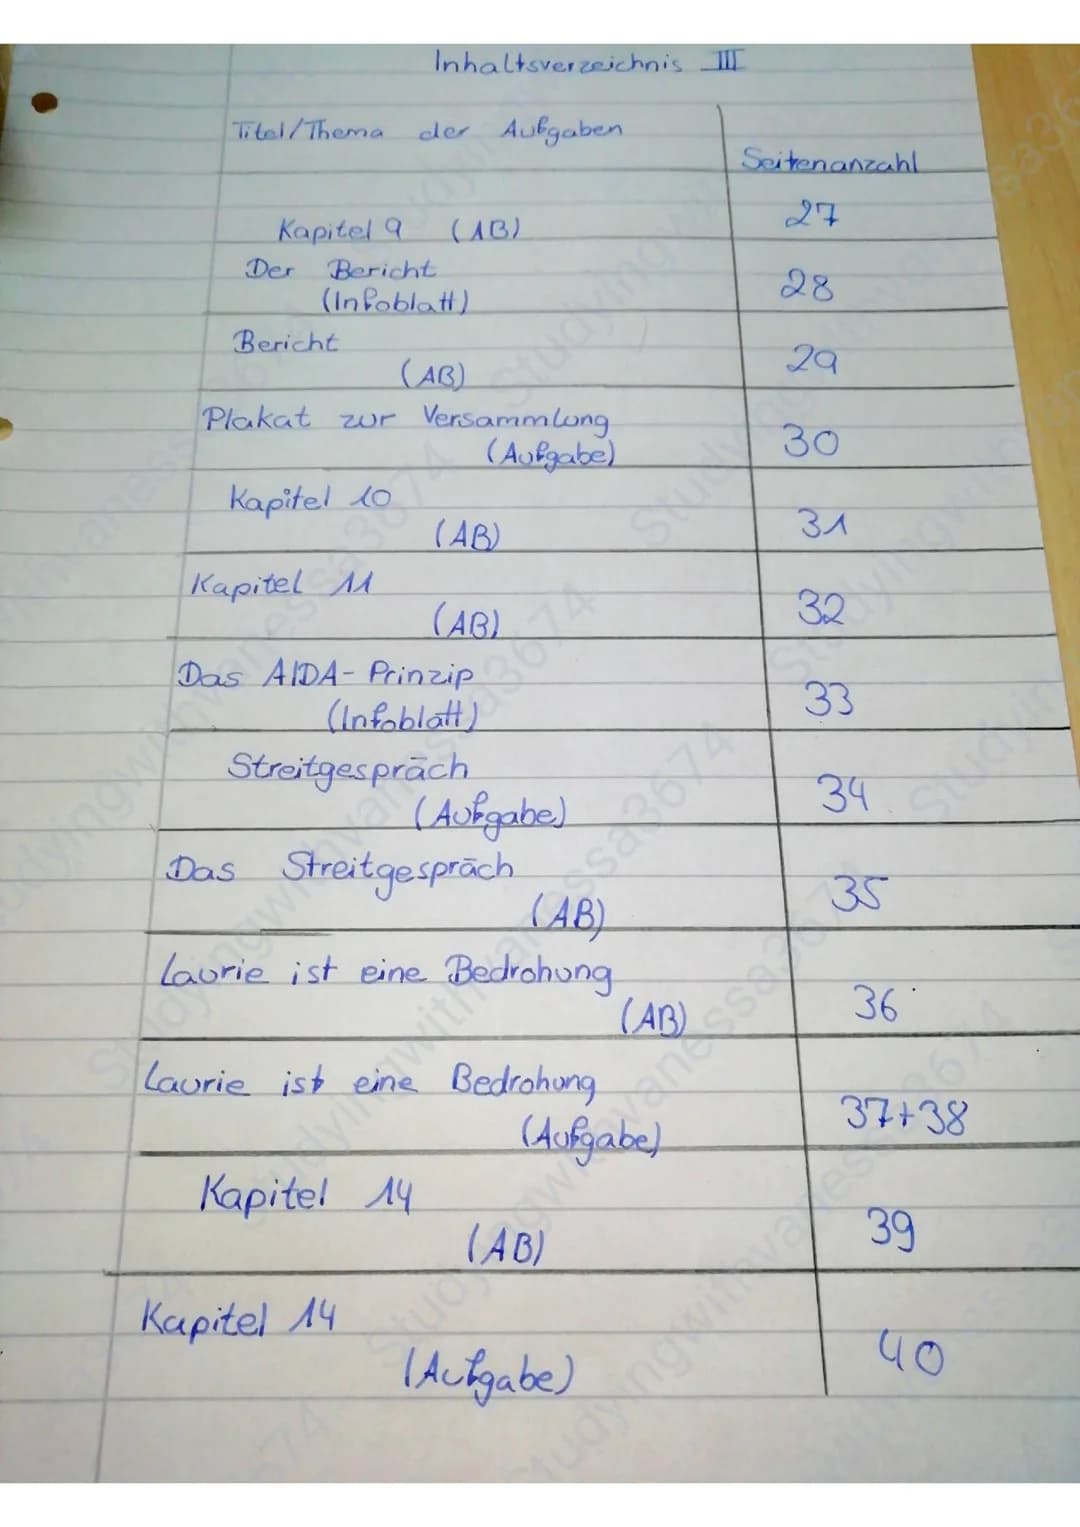 Inhaltsverzeichnis III
Titel/Thema der Aufgaben
Seitenanzahl
Kapitel 9 (AB)
27
Der Bericht
(Infoblatt)
28
Bericht
(AB)
29
Plakat zur Versammlung
(Aufgabe)
30
Kapitel 10
(AB)
31
Kapitel 11
(AB)
32
Das AIDA-Prinzip
(Infoblatt)
33
Streitgespräch
(Aufgabe)
34
Das Streitgespräch
(AB)
35
Laurie ist eine Bedrohung
(AB)
36
Laurie ist eine Bedrohung
(Aufgabe)
37+38
Kapitel 14
(AB)
39
Kapitel 14
(Aufgabe)
40
Studyingwithvanessa3674